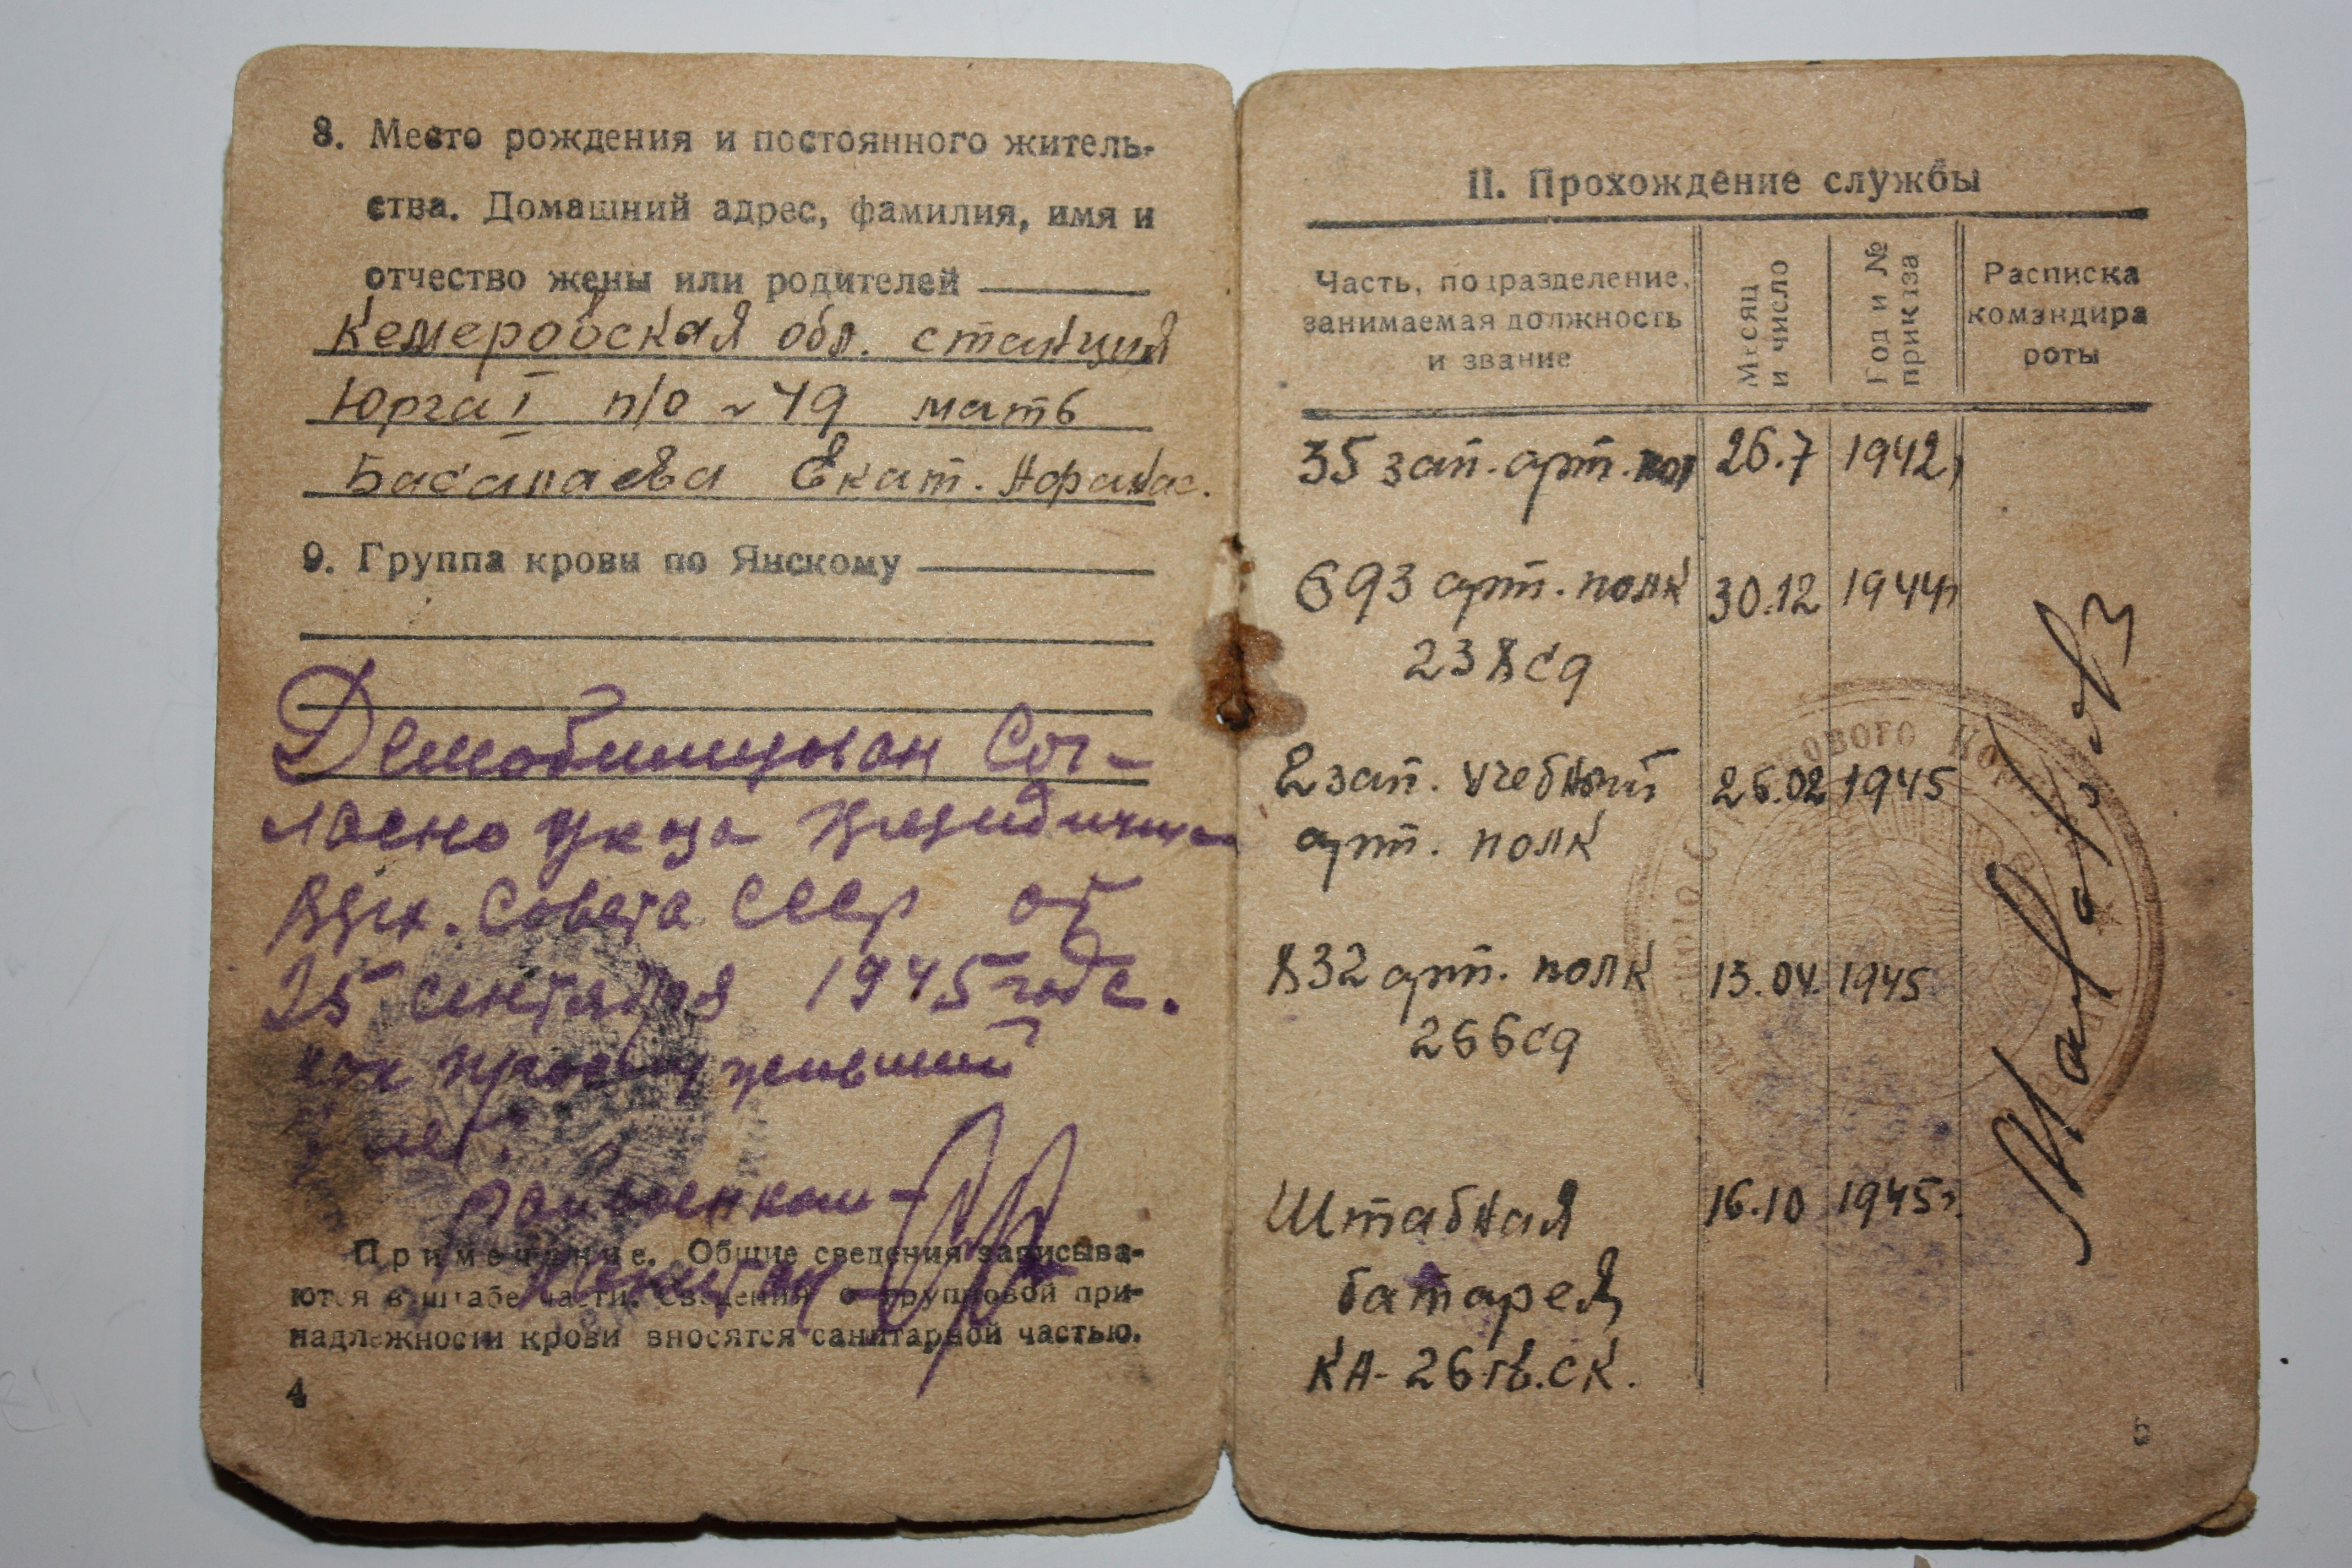 8. Место рождения и постоянного житель-
ства. Домашний адрес, фамилия, имя и
отчество жены или родителей
Кемеровская обл. станция
Юрга I п/о № 49 мать
Басалаева Екат. Афанас.
9. Группа крови по Янскому
Демобилизован Сог-
ласно Указа Президиума
Верх. Совета СССР от
25 сентября 1945 года.
как прослуживший
лет.
Райвоенком
Капитан
Примечание. Общие сведения записыва-
ются в штабе части. Сведения о групповой при-
надлежности крови вносятся санитарной частью.
4
II. Прохождение службы
Часть, подразделение, занимаемая должность и звание
Месяц и число
Год и № приказа
Расписка командира роты
35 зап. арт. пол 26.7 1942г
693 арт. полк 30.12 1944г
238 сд
2 зап. учебный 26.02 1945
арт. полк
832 арт. полк 13.04. 1945
266 сд
Штабная 16.10 1945г.
батарея
КА-26 гв. ск.
5